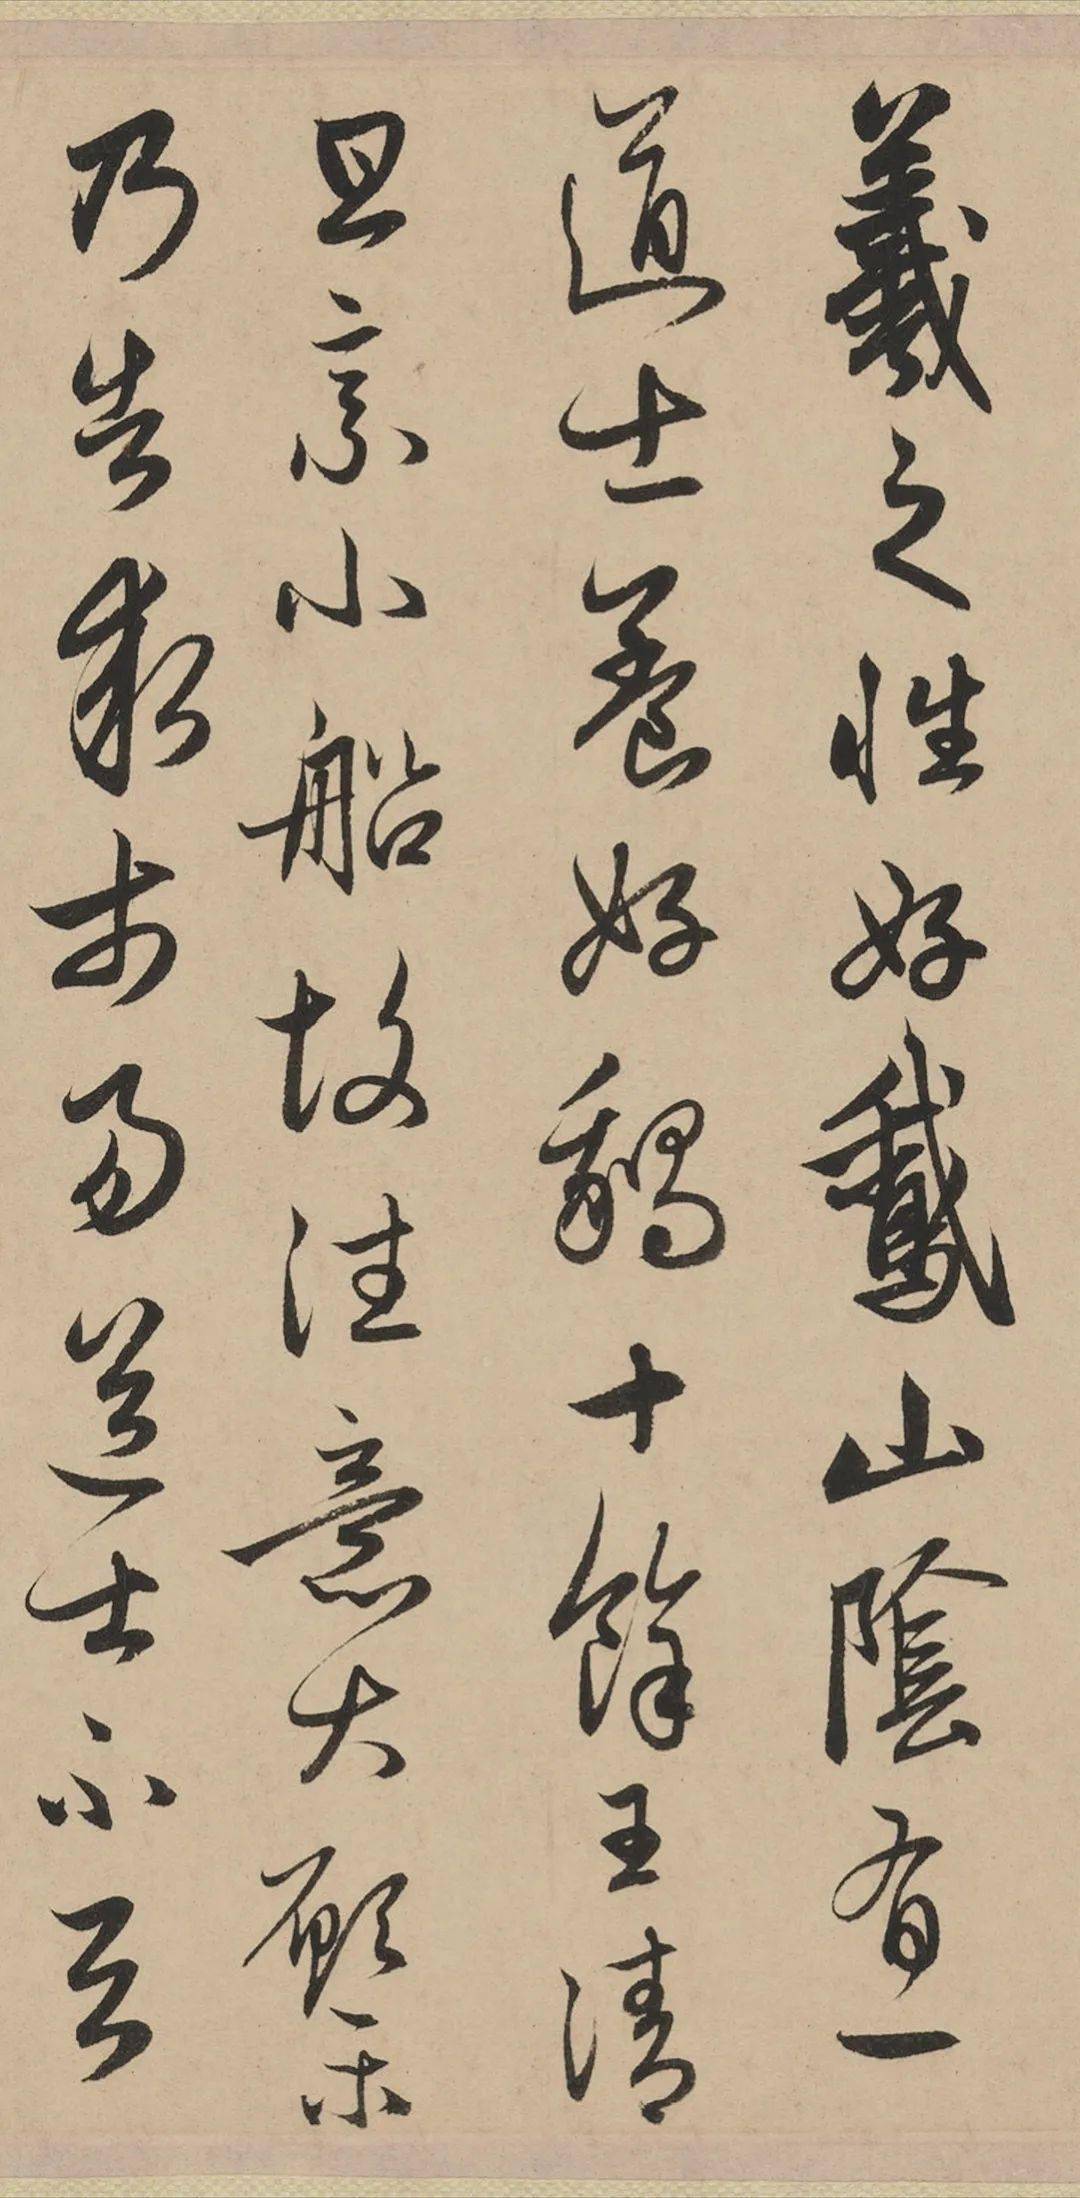 羲之性好鵞山陰有一
道士養好鵝十餘王清
旦乘小船故往意大願樂
乃告求市易道士不與